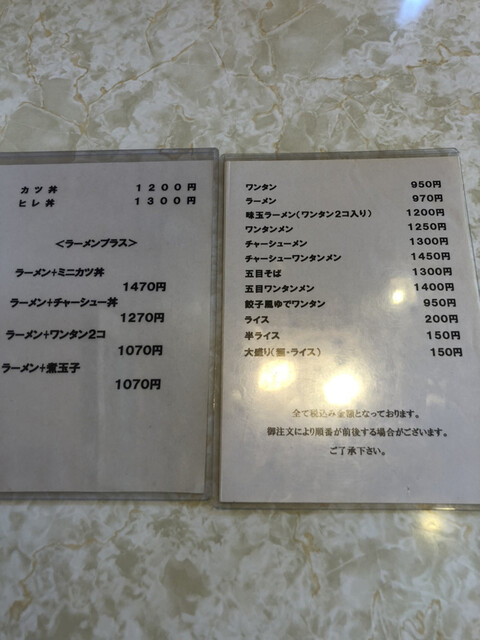 カツ丼 1200円
ヒレ丼 1300円
＜ラーメンプラス＞
ラーメン+ミニカツ丼
1470円
ラーメン+チャーシュー丼
1270円
ラーメン+ワンタン2コ
1070円
ラーメン+煮玉子
1070円
ワンタン 950円
ラーメン 970円
味玉ラーメン(ワンタン2コ入り) 1200円
ワンタンメン 1250円
チャーシューメン 1300円
チャーシューワンタンメン 1450円
五目そば 1300円
五目ワンタンメン 1400円
餃子風ゆでワンタン 950円
ライス 200円
半ライス 150円
大盛り(麺・ライス) 150円
全て税込み金額となっております。
御注文により順番が前後する場合がございます。
ご了承下さい。